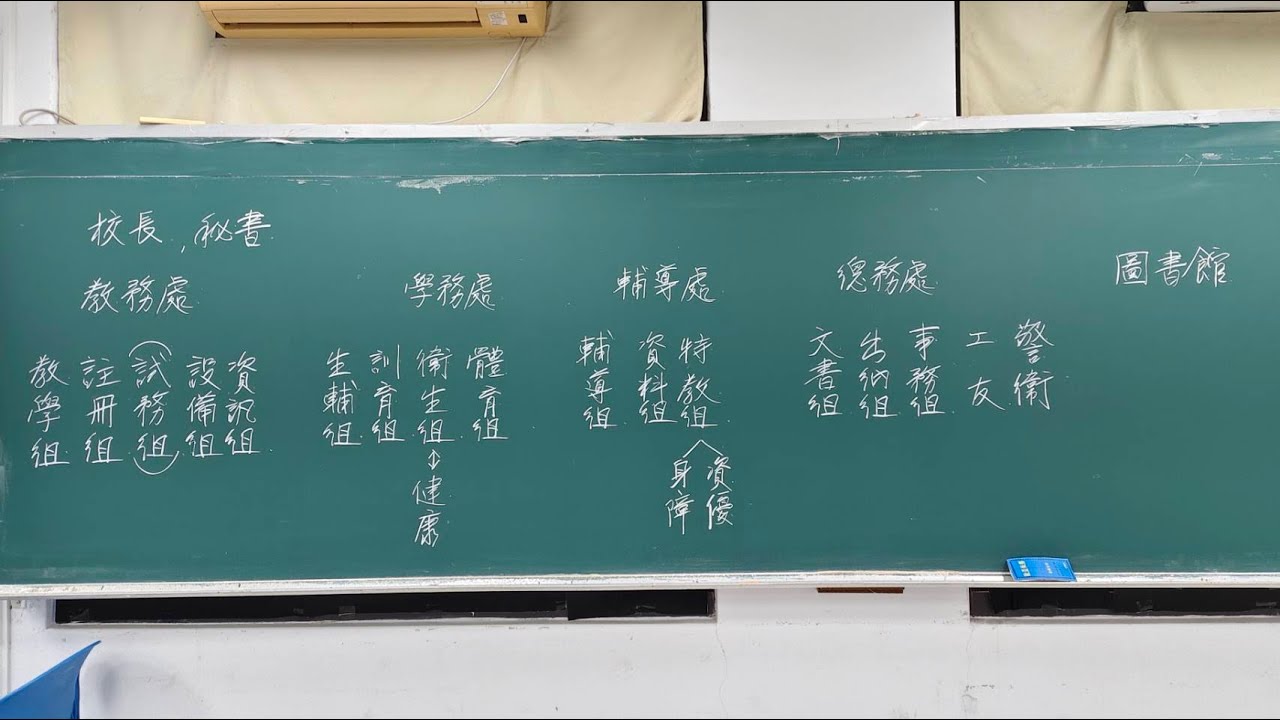 校長，秘書
教務處
教學組
註冊組
（試務組）
設備組
資訊組
學務處
生輔組
訓育組
衛生組
↕
健康
體育組
輔導處
輔導組
資料組
特教組
身障
資優
總務處
文書組
出納組
事務組
工友
警衛
圖書館